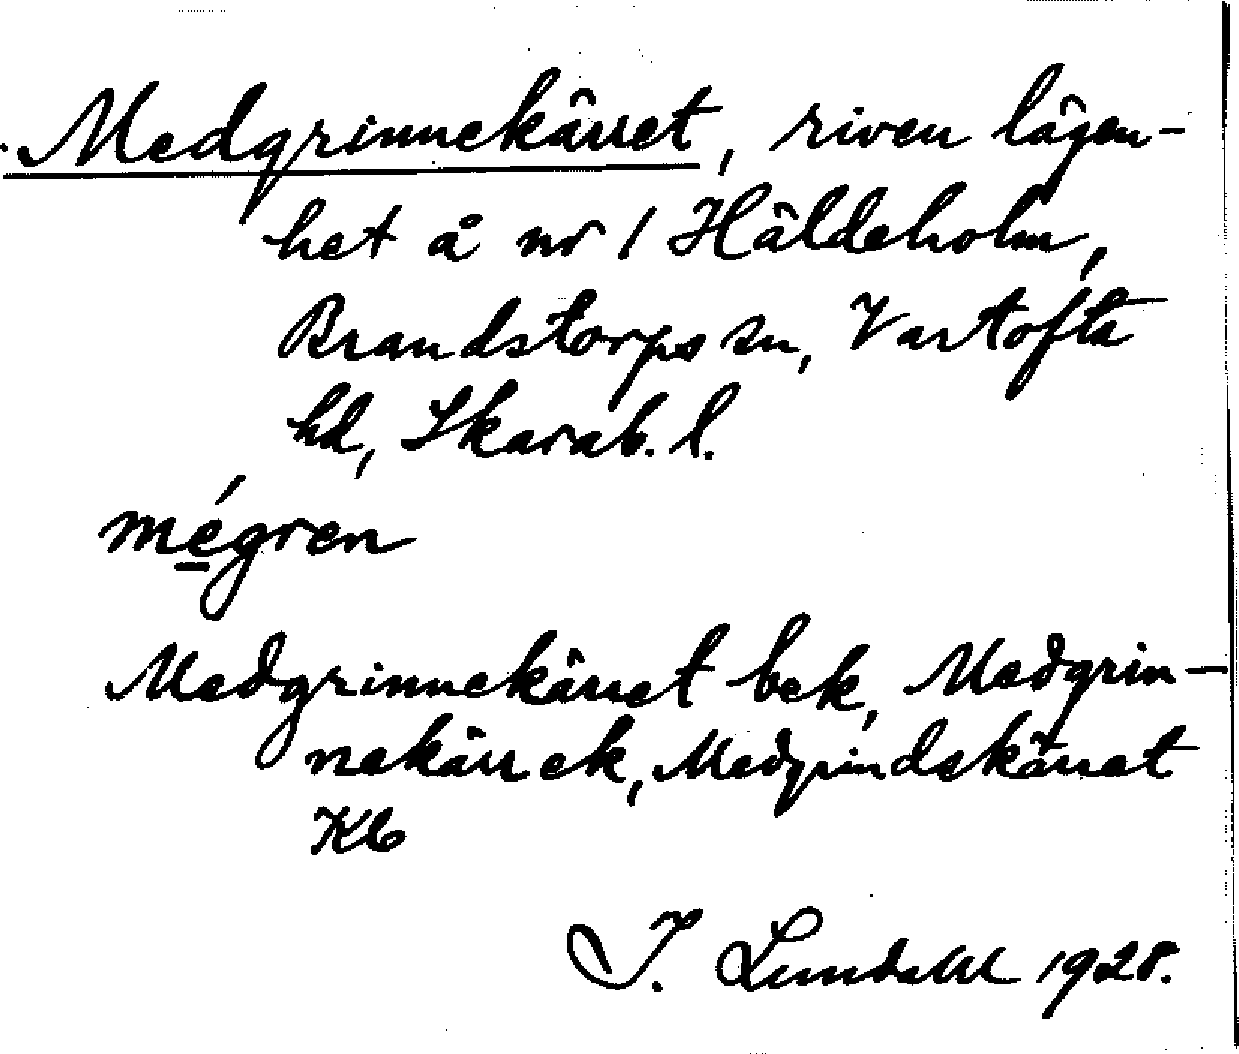 Medgrinnekärret, riven lägen-
het å nr 1 Häldeholm,
Brandstorps sn, Vartofta
hd, Skarab. l.
mégren
Medgrinnekärret bek, Medgrin-
nekärr ek, Medgrindskärret
Kb
I. Lundahl 1928.